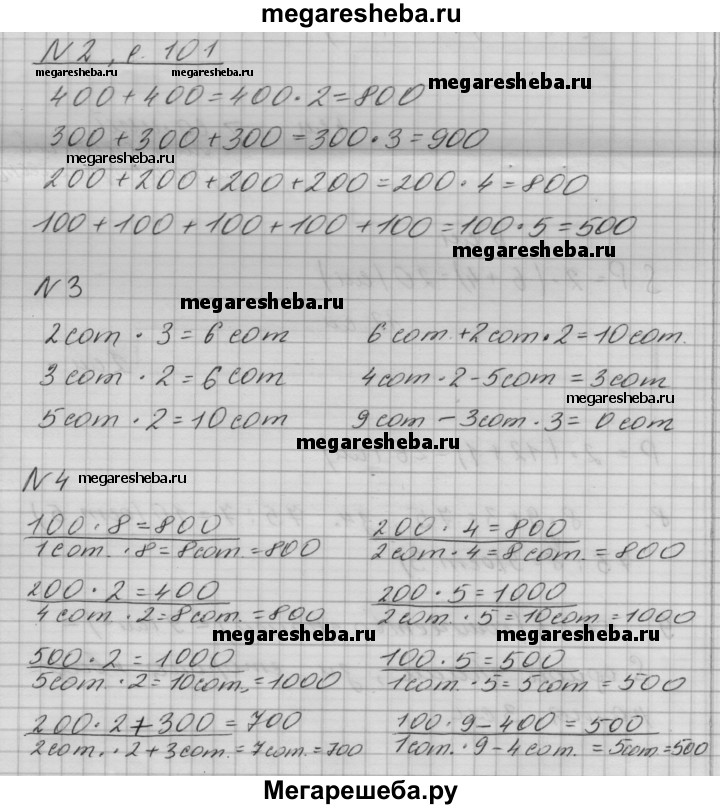 megaresheba.ru
N 2, с. 101
megaresheba.ru megaresheba.ru
400 + 400 = 400 · 2 = 800 megaresheba.ru
300 + 300 + 300 = 300 · 3 = 900
megaresheba.ru
200 + 200 + 200 + 200 = 200 · 4 = 800
100 + 100 + 100 + 100 + 100 = 100 · 5 = 500
megaresheba.ru
N 3
megaresheba.ru
2 сот · 3 = 6 сот 6 сот. + 2 сот · 2 = 10 сот.
3 сот · 2 = 6 сот 4 сот · 2 - 5 сот = 3 сот
megaresheba.ru
5 сот · 2 = 10 сот 9 сот - 3 сот · 3 = 0 сот
megaresheba.ru
N 4 megaresheba.ru
100 · 8 = 800 200 · 4 = 800
1 сот. · 8 = 8 сот. = 800 2 сот · 4 = 8 сот. = 800
200 · 2 = 400 200 · 5 = 1000
4 сот. · 2 = 8 сот. = 800 2 сот. · 5 = 10 сот. = 1000
megaresheba.ru megaresheba.ru
500 · 2 = 1000 100 · 5 = 500
5 сот. · 2 = 10 сот. = 1000 1 сот. · 5 = 5 сот = 500
200 · 2 + 300 = 700 100 · 9 - 400 = 500
2 сот. · 2 + 3 сот. = 7 сот. = 700 1 сот. · 9 - 4 сот. = 5 сот = 500
Мегарешеба.ру